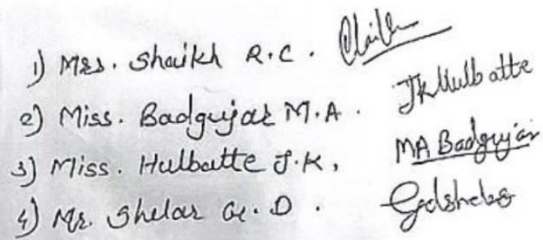 1) Mrs. Shaikh R.C.
2) Miss. Badgujar M.A. JKHulbatte
3) Miss. Hulbatte J.K, MABadgujar
4) Mr. Shelar G.D.